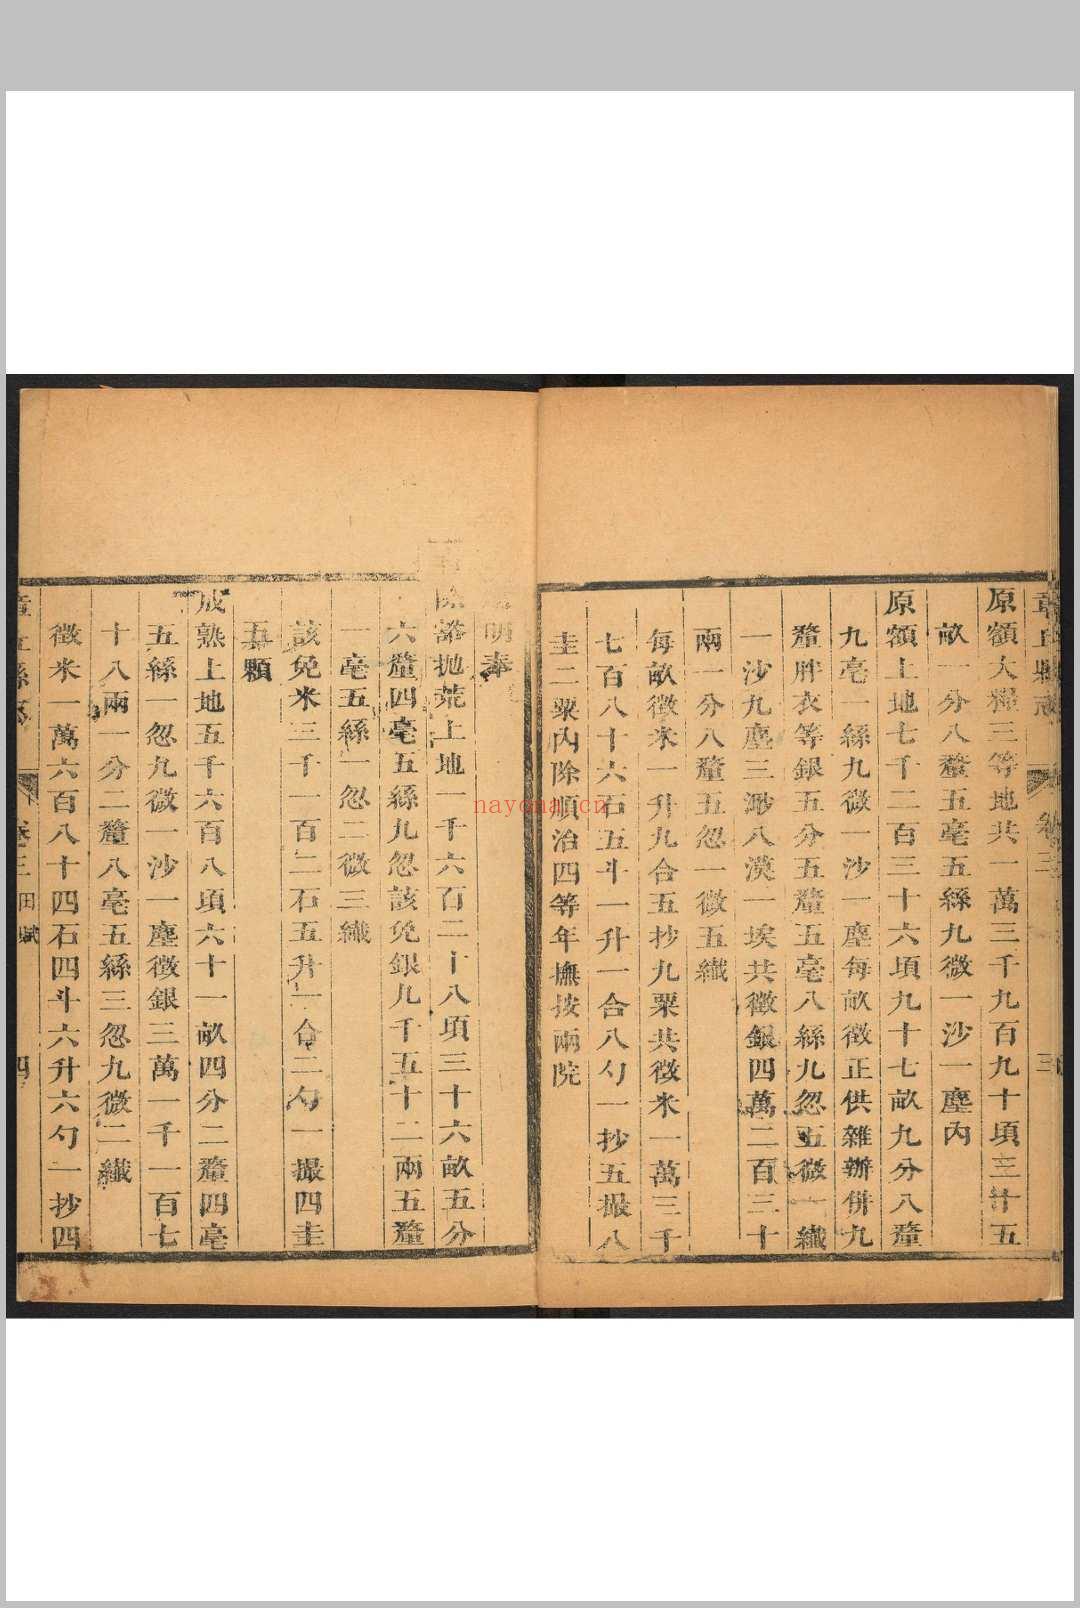 章丘縣志
卷三
三
原額大糧三等地共一萬三千九百九十頃三十五
畝 分八釐五毫五絲九微一沙一塵內
原額上地七千二百三十六頃九十七畝九分八釐
九毫一絲九微一沙一塵每畝徵正供雜辦併九
釐胖衣等銀五分五釐五毫八絲九忽五微一纖
一沙九塵三渺八漠一埃共徵銀四萬二百三十
兩一分八釐五忽一微五纖
每畝徵米一升九合五抄九粟共徵米一萬三千
七百八十六石五斗一升一合八勺一抄五撮八
圭二粟內除順治四等年撫按兩院
明奉
除 拋荒上地一千六百二十八頃三十六畝五分
六釐四毫五絲九忽該免銀九千五十二兩五釐
一毫五絲一忽二微三纖
該免米三千一百二石五升一合二勺一撮四圭
五顆
成熟上地五千六百八頃六十一畝四分二釐四毫
五絲一忽九微一沙一塵徵銀三萬一千一百七
十八兩一分二釐八毫五絲三忽九微二纖
徵米一萬六百八十四石四斗六升六勺一抄四
章丘縣志
卷三
田賦
四
nayona.cn